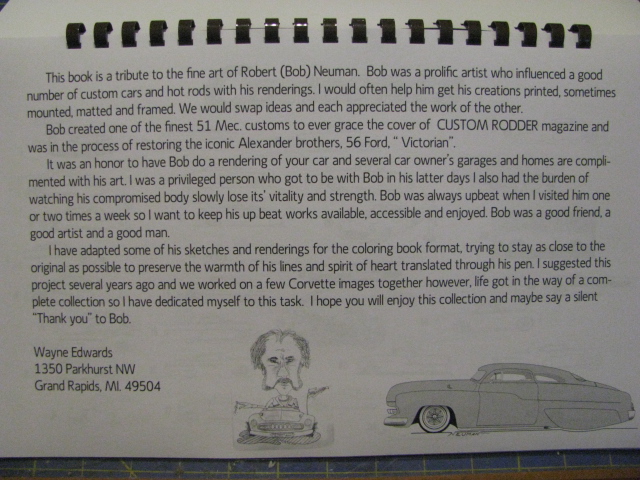 This book is a tribute to the fine art of Robert (Bob) Neuman. Bob was a prolific artist who influenced a good
number of custom cars and hot rods with his renderings. I would often help him get his creations printed, sometimes
mounted, matted and framed. We would swap ideas and each appreciated the work of the other.
Bob created one of the finest 51 Mec. customs to ever grace the cover of CUSTOM RODDER magazine and
was in the process of restoring the iconic Alexander brothers, 56 Ford, " Victorian".
It was an honor to have Bob do a rendering of your car and several car owner's garages and homes are compli-
mented with his art. I was a privileged person who got to be with Bob in his latter days I also had the burden of
watching his compromised body slowly lose its' vitality and strength. Bob was always upbeat when I visited him one
or two times a week so I want to keep his up beat works available, accessible and enjoyed. Bob was a good friend, a
good artist and a good man.
I have adapted some of his sketches and renderings for the coloring book format, trying to stay as close to the
original as possible to preserve the warmth of his lines and spirit of heart translated through his pen. I suggested this
project several years ago and we worked on a few Corvette images together however, life got in the way of a com-
plete collection so I have dedicated myself to this task. I hope you will enjoy this collection and maybe say a silent
"Thank you" to Bob.
Wayne Edwards
1350 Parkhurst NW
Grand Rapids, MI. 49504